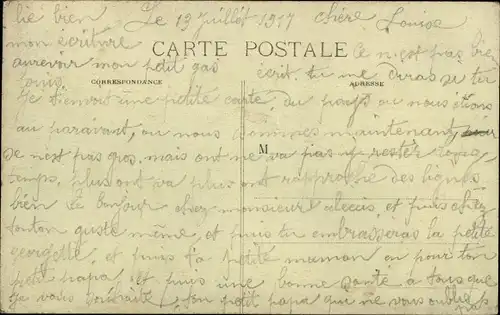 lié bien Le 13 Juillet 1917 chère Louise
mon écriture
CARTE POSTALE
Ce n'est pas bien
aurevoir mon petit gas
écrit. tu me diras si tu
CORRESPONDANCE
ADRESSE
Je t'envois une petite carte, du pays ou nous étions
au paravant, ou nous sommes maintenant,
se n'est pas gros, mais ont ne va pas y rester
M
temps, plus ont va plus ont rapproche des lignes
bien le bonjour chez monsieur alexis et puis chez
tonton guste même, et puis tu embrasseras la petite
georgette, et puis ta petite maman ou pour ton
petit papa, et puis une bonne santé à tous que
je vous souhaite, ton petit papa qui ne vous oublie
pas